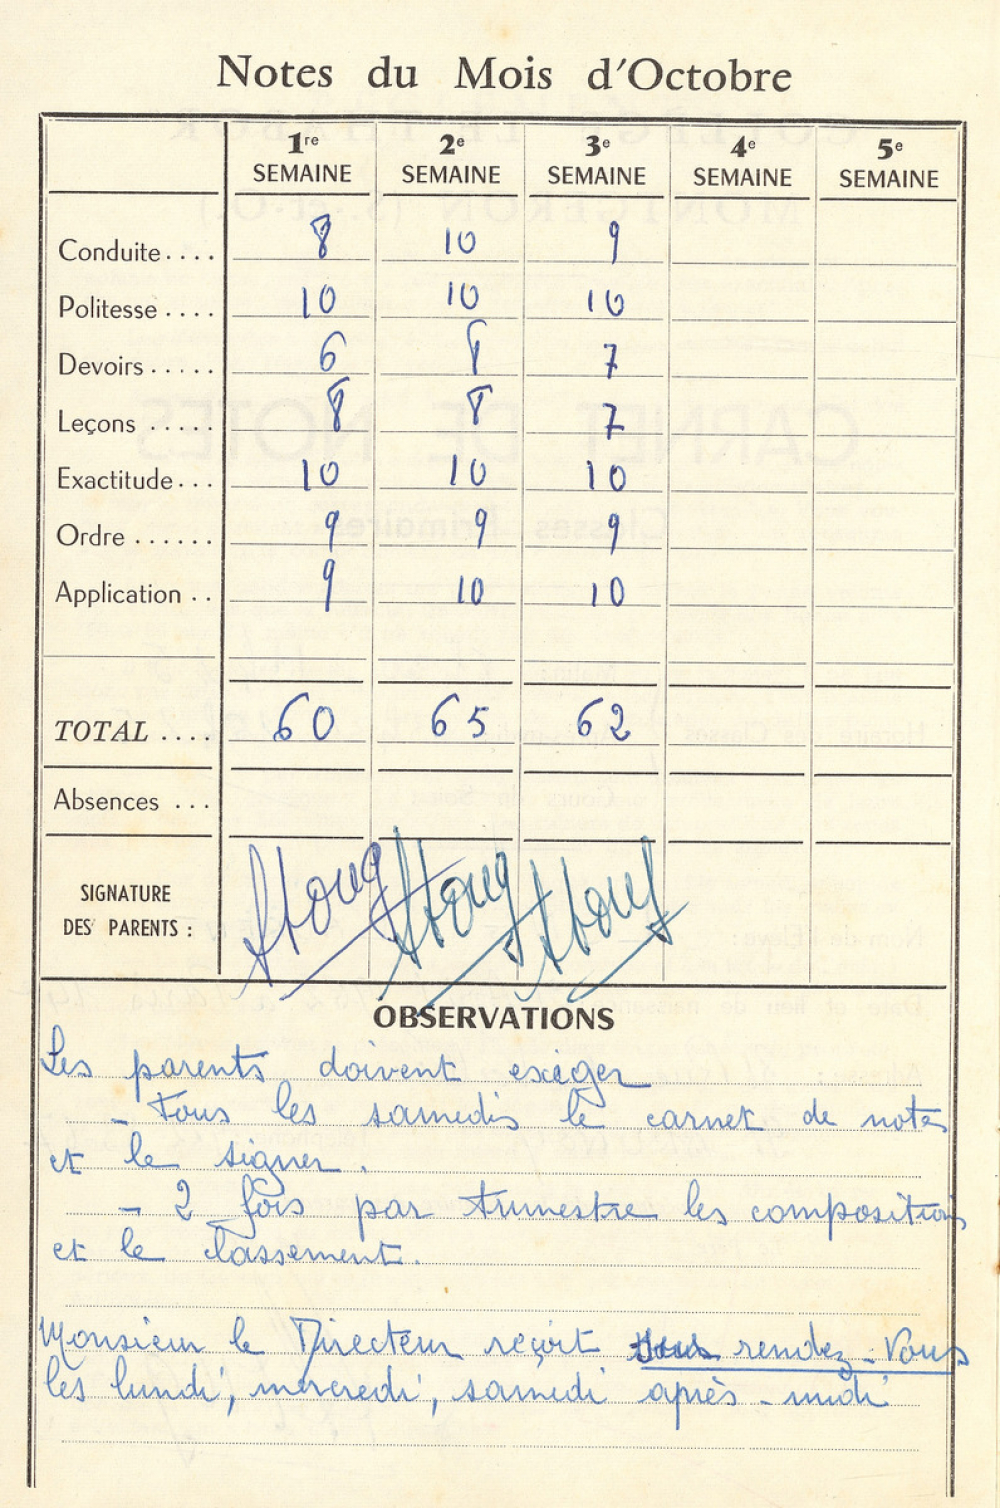 Notes du Mois d'Octobre
1re SEMAINE 2e SEMAINE 3e SEMAINE 4e SEMAINE 5e SEMAINE
Conduite.... 8 10 9
Politesse.... 10 10 10
Devoirs..... 6 8 7
Leçons ..... 8 8 7
Exactitude... 10 10 10
Ordre ...... 9 9 9
Application .. 9 10 10
TOTAL .... 60 65 62
Absences ...
SIGNATURE
DES PARENTS :
OBSERVATIONS
Les parents doivent exiger
- Tous les samedis le carnet de notes
et le signer.
- 2 fois par trimestre les compositions
et le classement.
Monsieur le Directeur reçoit sous rendez-vous
les lundi, mercredi, samedi après-midi